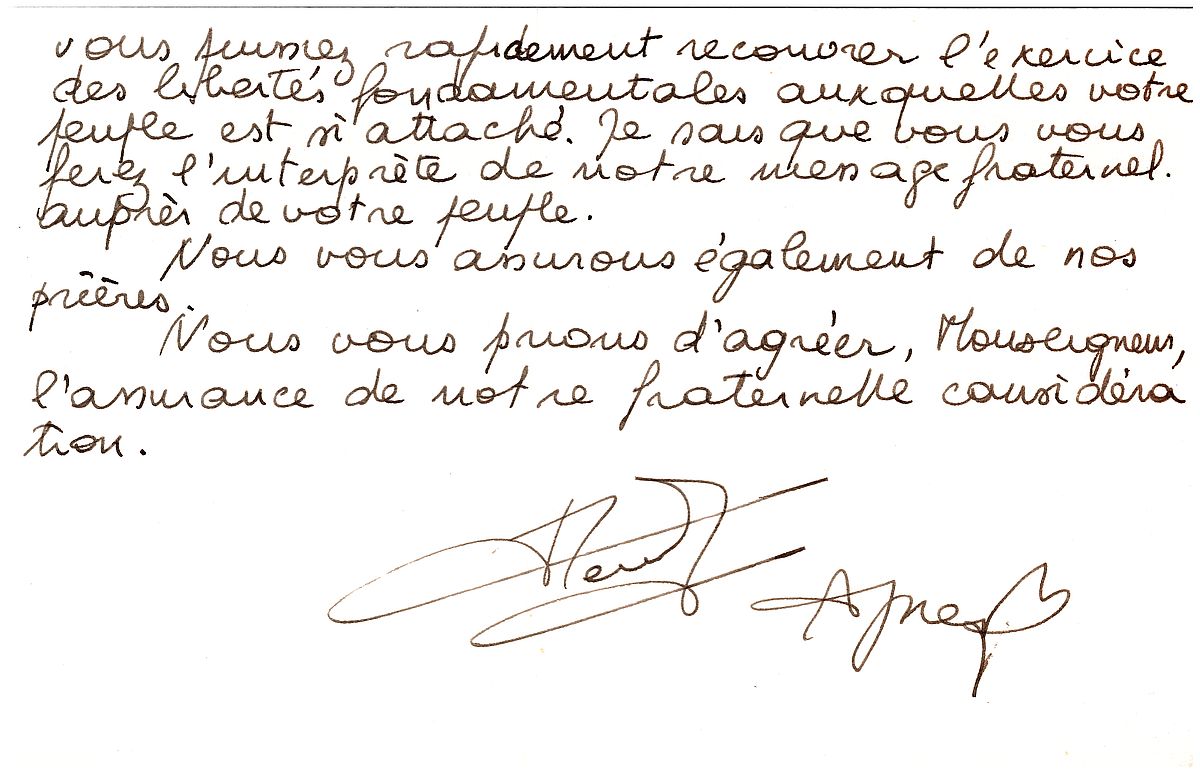 vous puissiez rapidement recouvrer l'exercice
des libertés fondamentales auxquelles votre
peuple est si attaché. Je sais que vous vous
ferez l'interprète de notre message fraternel.
auprès de votre peuple.
Nous vous assurons également de nos
prières.
Nous vous prions d'agréer, Monseigneur,
l'assurance de notre fraternelle considéra
tion.